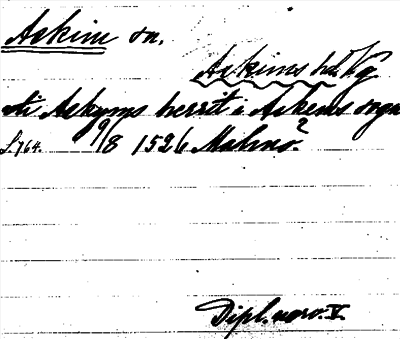 Askim sn.
Askims hd. Vg
đti Askyms herrit i Askems sogn
S.764. 9/8 1526 Malmö?
Dipl. norv. V.